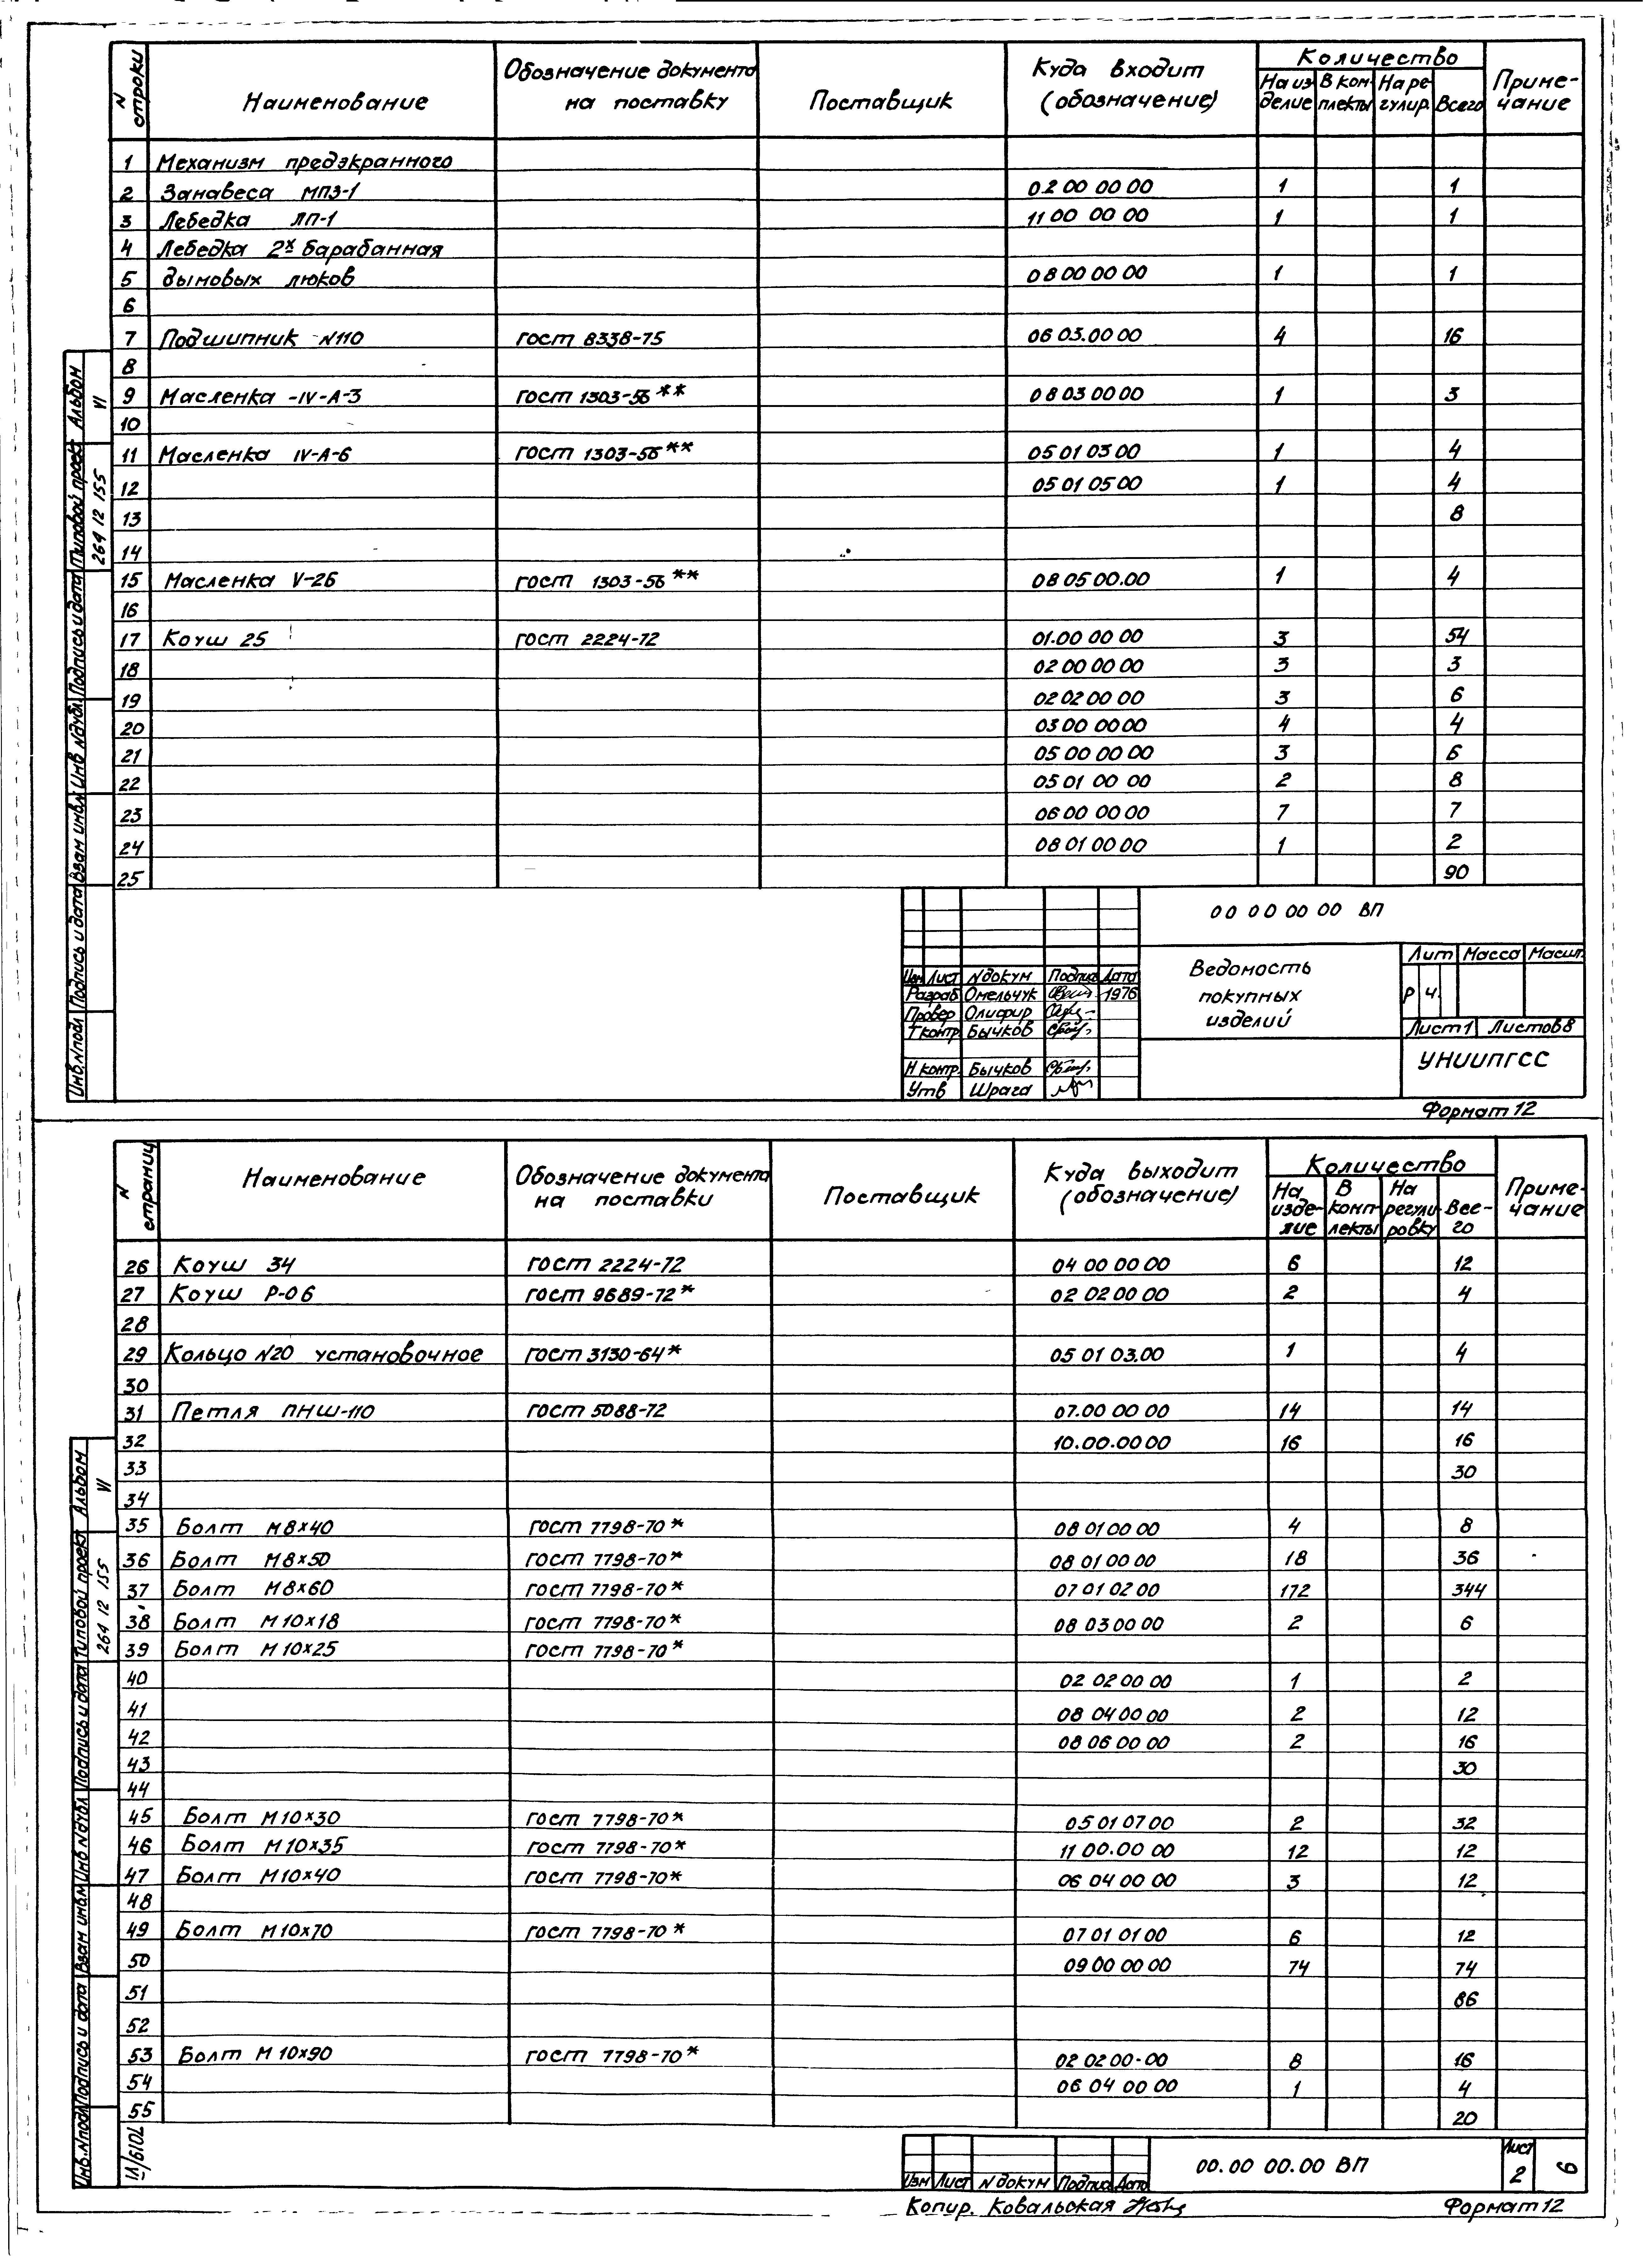 N строки | Наименование | Обозначение документа на поставку | Поставщик | Куда входит (обозначение) | Количество | Приме-чание
На из-делие | В ком-плекты | На ре-гулир. | Всего
1 Механизм предэкранного
2 Занавеса МПЗ-1 02 00 00 00 1 1
3 Лебедка ЛП-1 11 00 00 00 1 1
4 Лебедка 2х барабанная
5 дымовых люков 08 00 00 00 1 1
6
7 Подшипник N110 ГОСТ 8338-75 06 03.00 00 4 16
8
9 Масленка -IV-А-3 ГОСТ 1303-56** 08 03 00 00 1 3
10
11 Масленка IV-А-6 ГОСТ 1303-56** 05 01 03 00 1 4
12 05 01 05 00 1 4
13 8
14
15 Масленка V-2б ГОСТ 1303-56** 08 05 00.00 1 4
16
17 Коуш 25 ГОСТ 2224-72 01.00 00 00 3 54
18 02 00 00 00 3 3
19 02 02 00 00 3 6
20 03 00 00 00 4 4
21 05 00 00 00 3 6
22 05 01 00 00 2 8
23 06 00 00 00 7 7
24 08 01 00 00 1 2
25 90
Альбом VI
Типовой проект 264 12 155
Подпись и дата
Инв Nдубл.
Взам инв.N
Подпись и дата
Инв.Nподл
00 00 00 00 ВП
Изм Лист Nдокум Подпис Дата
Разраб Омельчук 1976
Провер Олифир
Т контр. Бычков
Н контр. Бычков
Утв Шрага
Ведомость
покупных
изделий
Лит Масса Масшт.
Р Ч.
Лист 1 Листов 8
УНИИПГСС
Формат 12
N страниц | Наименование | Обозначение документа на поставки | Поставщик | Куда выходит (обозначение) | Количество | Приме-чание
На изде-лие | В комп-лекты | На регули-ровку | Все-го
26 Коуш 34 ГОСТ 2224-72 04 00 00 00 6 12
27 Коуш Р-06 ГОСТ 9689-72* 02 02 00 00 2 4
28
29 Кольцо N20 установочное ГОСТ 3130-64* 05 01 03.00 1 4
30
31 Петля ПНШ-110 ГОСТ 5088-72 07.00 00 00 14 14
32 10.00.00 00 16 16
33 30
34
35 Болт М8х40 ГОСТ 7798-70* 08 01 00 00 4 8
36 Болт М8х50 ГОСТ 7798-70* 08 01 00 00 18 36
37 Болт М8х60 ГОСТ 7798-70* 07 01 02 00 172 344
38 Болт М10х18 ГОСТ 7798-70* 08 03 00 00 2 6
39 Болт М10х25 ГОСТ 7798-70*
40 02 02 00 00 1 2
41 08 04 00 00 2 12
42 08 06 00 00 2 16
43 30
44
45 Болт М10х30 ГОСТ 7798-70* 05 01 07 00 2 32
46 Болт М10х35 ГОСТ 7798-70* 11 00.00 00 12 12
47 Болт М10х40 ГОСТ 7798-70* 06 04 00 00 3 12
48
49 Болт М10х70 ГОСТ 7798-70* 07 01 01 00 6 12
50 09 00 00 00 74 74
51 86
52
53 Болт М10х90 ГОСТ 7798-70* 02 02 00-00 8 16
54 06 04 00 00 1 4
55 20
Альбом VI
Типовой проект 264 12 155
Подпись и дата
Инв Nдубл
Взам инв.N
Подпись и дата
Инв.Nподл
7019/VI
Изм Лист N докум Подпис Дата
00.00 00.00 ВП
Лист 2
6
Копир. Ковальская
Формат 12